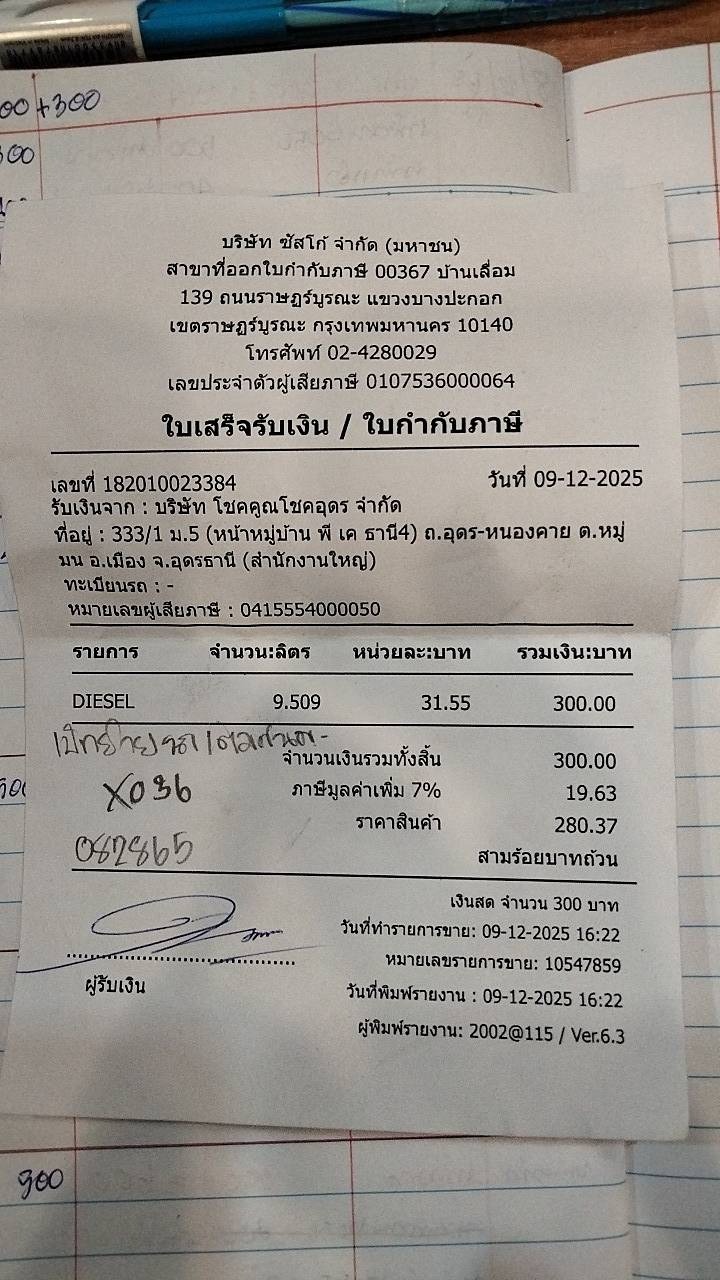 00+300
300
บริษัท ซัสโก้ จำกัด (มหาชน)
สาขาที่ออกใบกำกับภาษี 00367 บ้านเลื่อม
139 ถนนราษฎร์บูรณะ แขวงบางปะกอก
เขตราษฎร์บูรณะ กรุงเทพมหานคร 10140
โทรศัพท์ 02-4280029
เลขประจำตัวผู้เสียภาษี 0107536000064
ใบเสร็จรับเงิน / ใบกำกับภาษี
เลขที่ 182010023384 วันที่ 09-12-2025
รับเงินจาก : บริษัท โชคคูณโชคอุดร จำกัด
ที่อยู่ : 333/1 ม.5 (หน้าหมู่บ้าน พี เค ธานี4) ถ.อุดร-หนองคาย ต.หมู่
มน อ.เมือง จ.อุดรธานี (สำนักงานใหญ่)
ทะเบียนรถ : -
หมายเลขผู้เสียภาษี : 0415554000050
รายการ จำนวน:ลิตร หน่วยละ:บาท รวมเงิน:บาท
DIESEL 9.509 31.55 300.00
จำนวนเงินรวมทั้งสิ้น 300.00
X036
ภาษีมูลค่าเพิ่ม 7% 19.63
ราคาสินค้า 280.37
082865
สามร้อยบาทถ้วน
เงินสด จำนวน 300 บาท
วันที่ทำรายการขาย: 09-12-2025 16:22
หมายเลขรายการขาย: 10547859
ผู้รับเงิน
วันที่พิมพ์รายงาน : 09-12-2025 16:22
ผู้พิมพ์รายงาน: 2002@115 / Ver.6.3
900